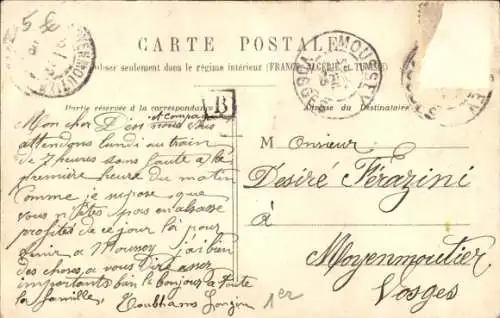 5 Sc
CARTE POSTALE
utiliser seulement dans le régime intérieur (FRANCE, ALGÉRIE et TUNISIE)
MOUSSEY
MOYENMOUTIER
Partie réservée à la correspondance
Adresse du Destinataire
B
Mon cher Désiré nous vous
attendons lundi au train
de 7 heures sans faute a la
première heure du matin
Comme je supose que
vous n'êtes pas en alsasse
profites de ce jour la pour
venir a Moussey j'ai bien
des choses a vous dire assez
importants bien le bonjour a toute
la famille
1er
Monsieur
Desiré Férazini
à
Moyenmoutier
Vosges